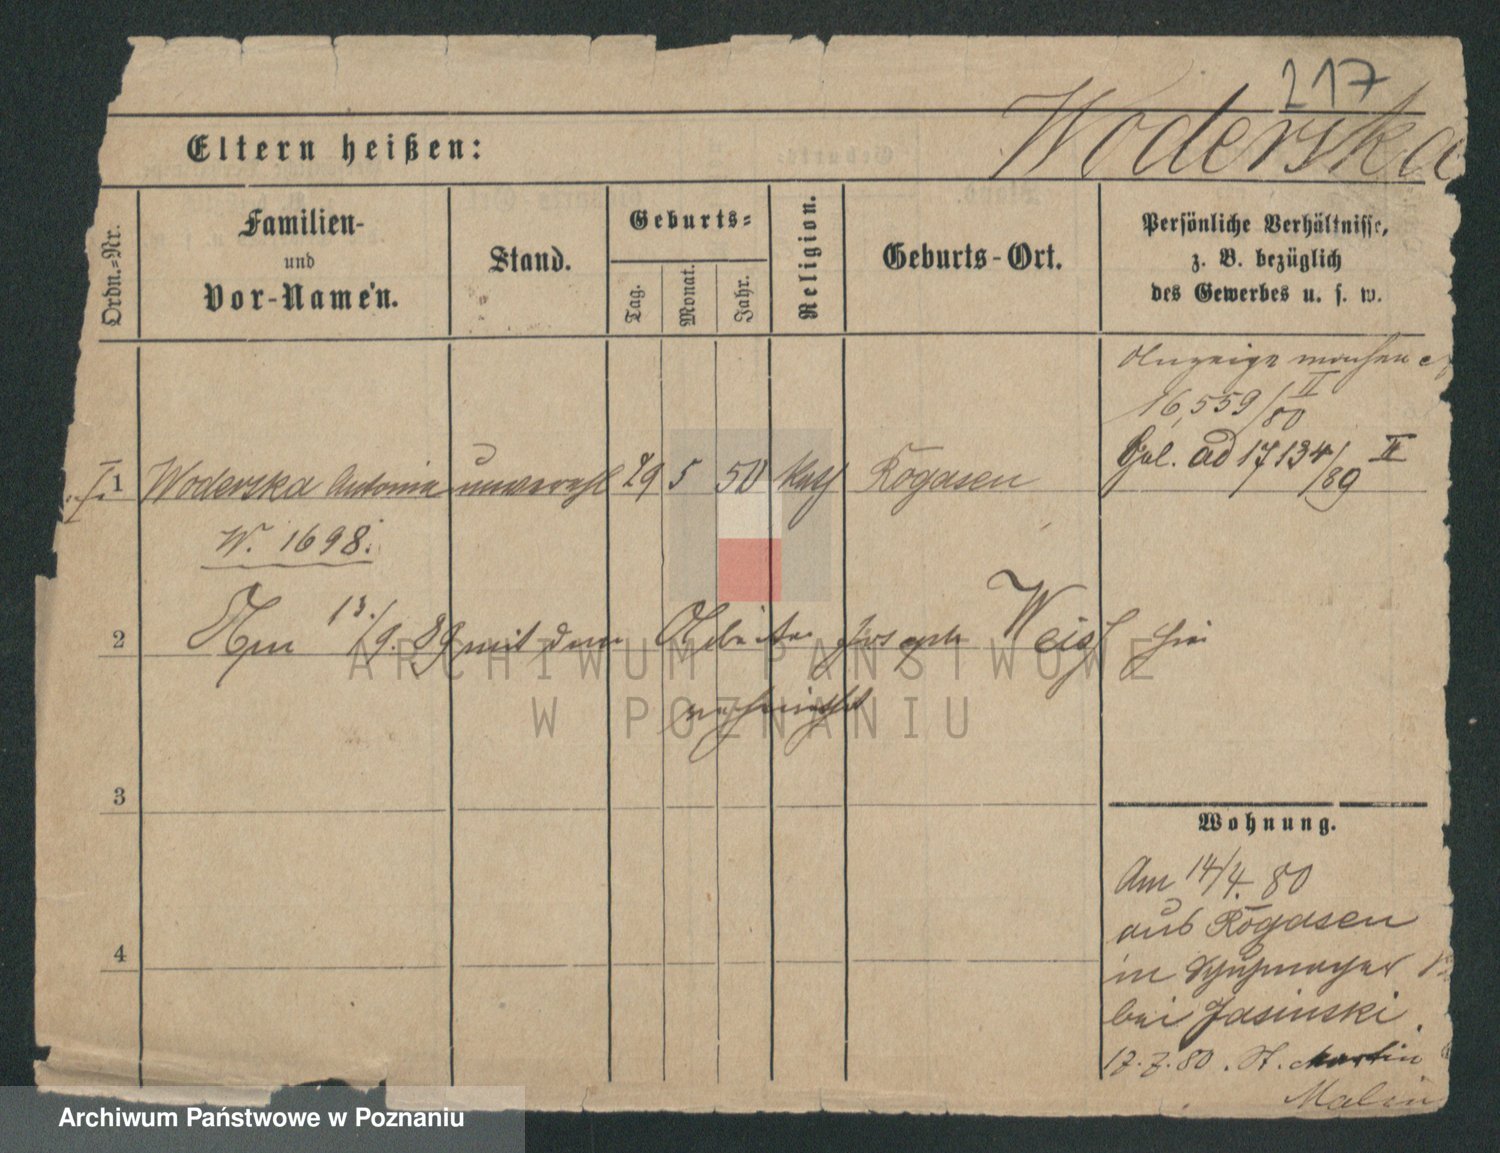 217
Woderska
Eltern heißen:
Ordn.=Nr.
Familien-
und
Vor-Namen.
Stand.
Geburts=
Tag.
Monat.
Jahr.
Religion.
Geburts-Ort.
Persönliche Verhältnisse,
z. B. bezüglich
des Gewerbes u. s. w.
Anzeige machen
16,559/80 II
ad 17134/89 II
1 Woderska Antonie unvereh 29 5 50 Kath Rogasen
W. 1698.
2 Am 13./9. 89 mit dem Arbeiter Joseph Weiß hier
verheirathet
3
Wohnung.
Am 14/4. 80
aus Rogasen
4
in Schuhmacher
bei Jasinski.
17.7.80. St. Martin
Malin
ARCHIWUM PAŃSTWOWE
W POZNANIU
Archiwum Państwowe w Poznaniu